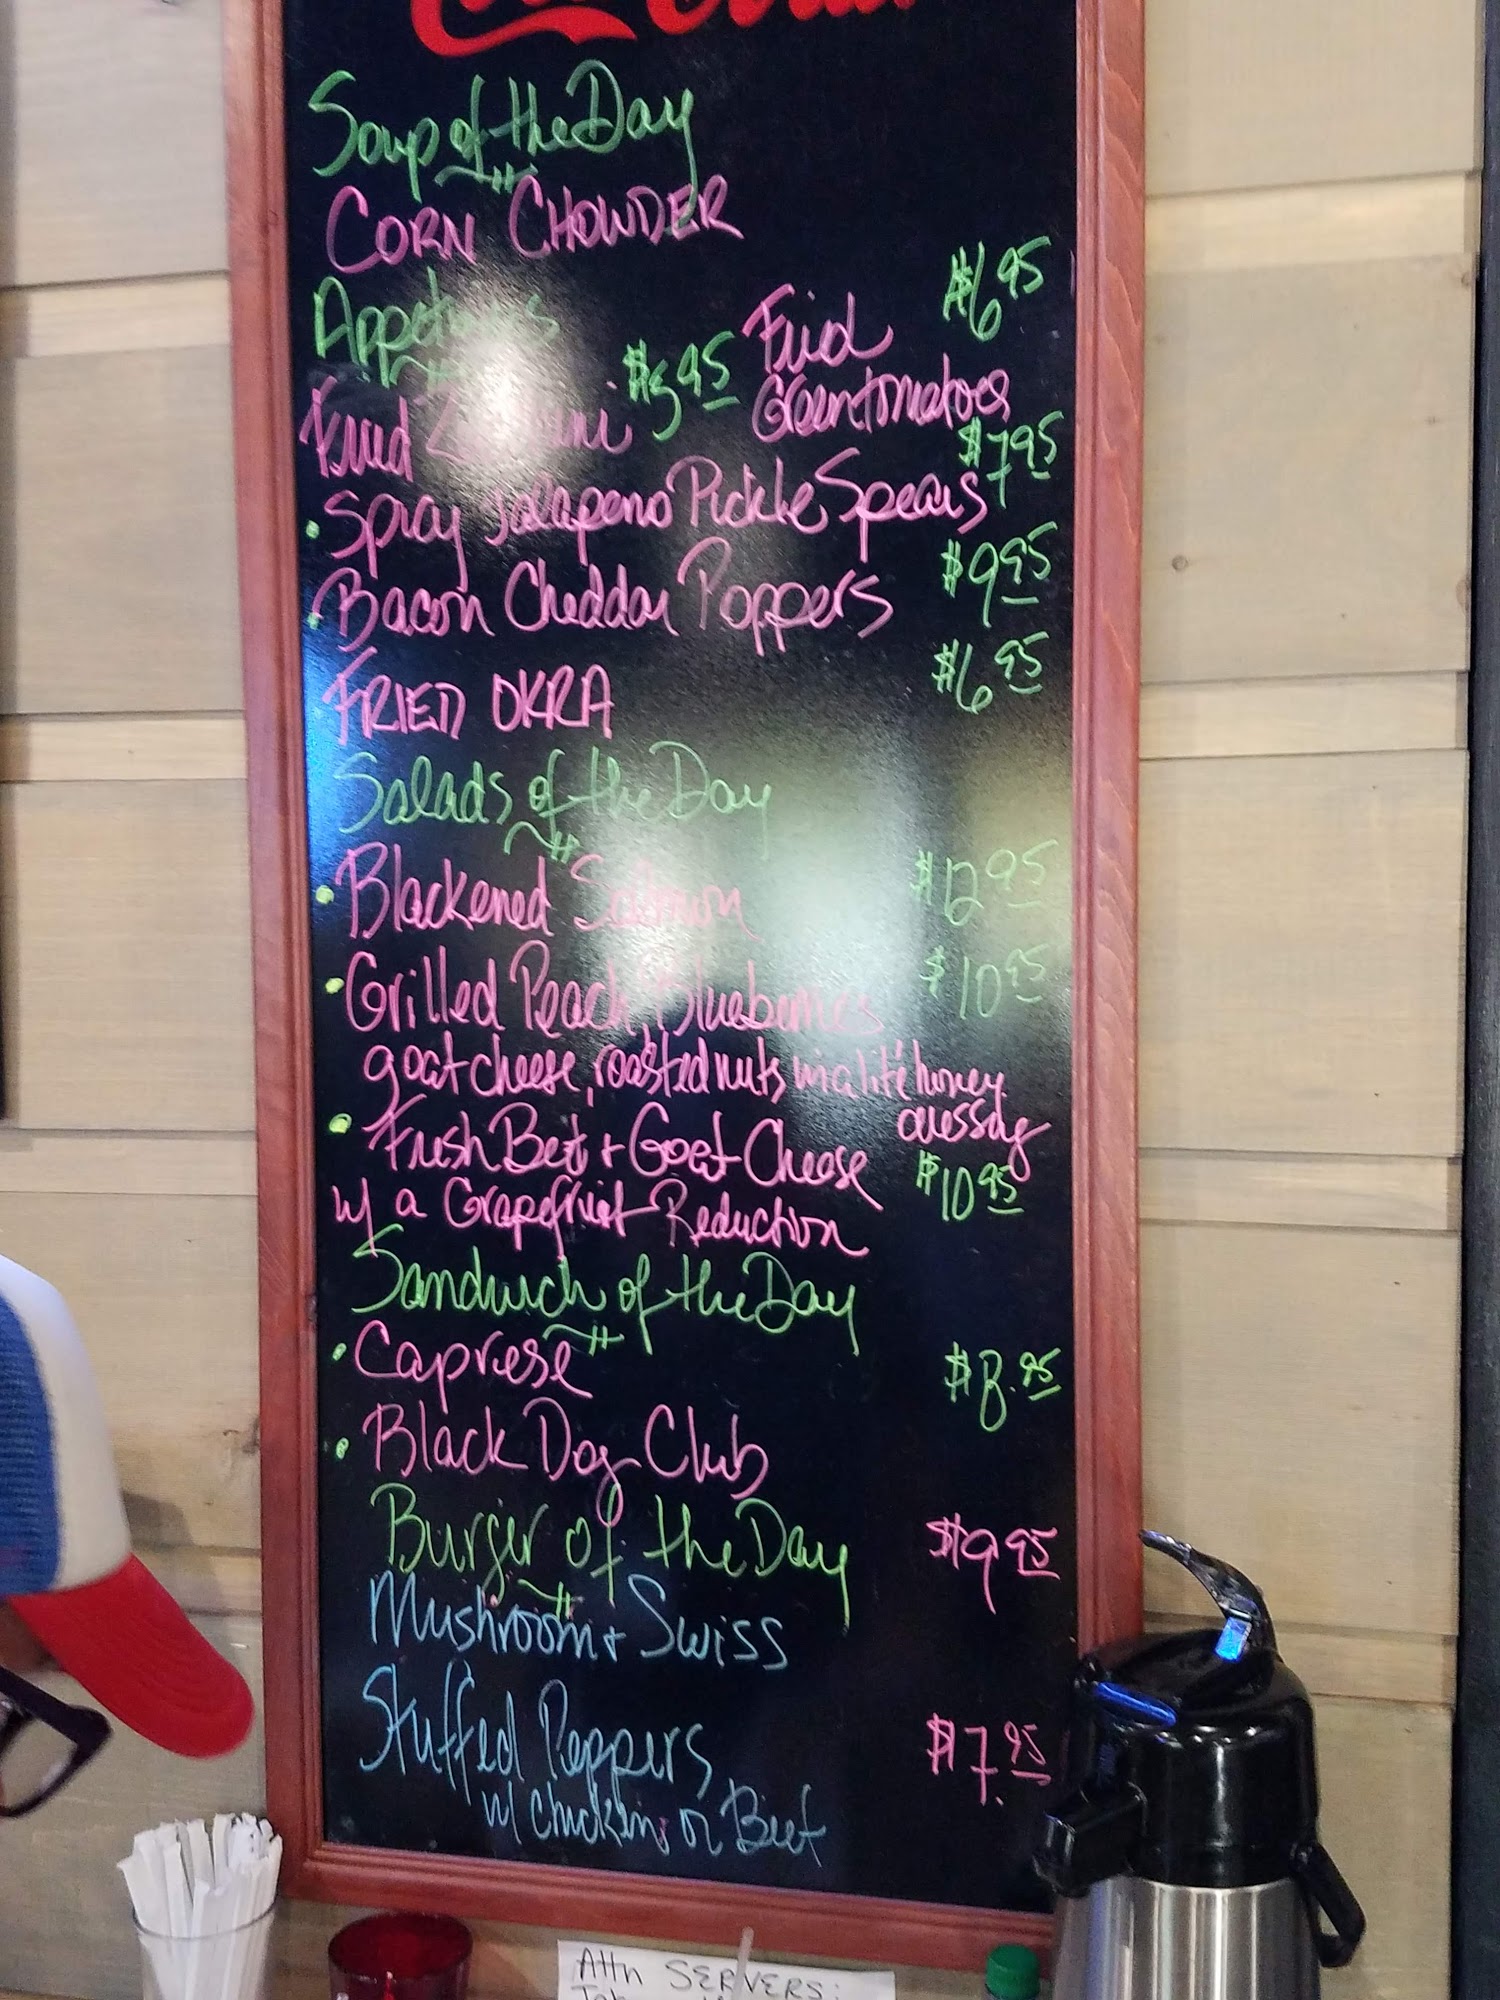 Soup of the Day
CORN CHOWDER
Appetizers
Fried Zucchini $5.95
Fried $6.95
Greentomatoes
Spicy Jalapeno Pickle Spears $7.95
Bacon Cheddar Poppers $9.95
FRIED OKRA $6.95
Salads of the Day
Blackened Salmon $12.95
Grilled Peach, Blueberries $10.95
goat cheese, roasted nuts in a lite honey
dressing
Fresh Beet + Goat Cheese $10.95
w/ a Grapefruit Reduction
Sandwich of the Day
Capriese $8.95
Black Dog Club
Burger of the Day $9.95
Mushroom + Swiss
Stuffed Peppers $7.95
w/ chicken or Beef
Attn SERVERS: